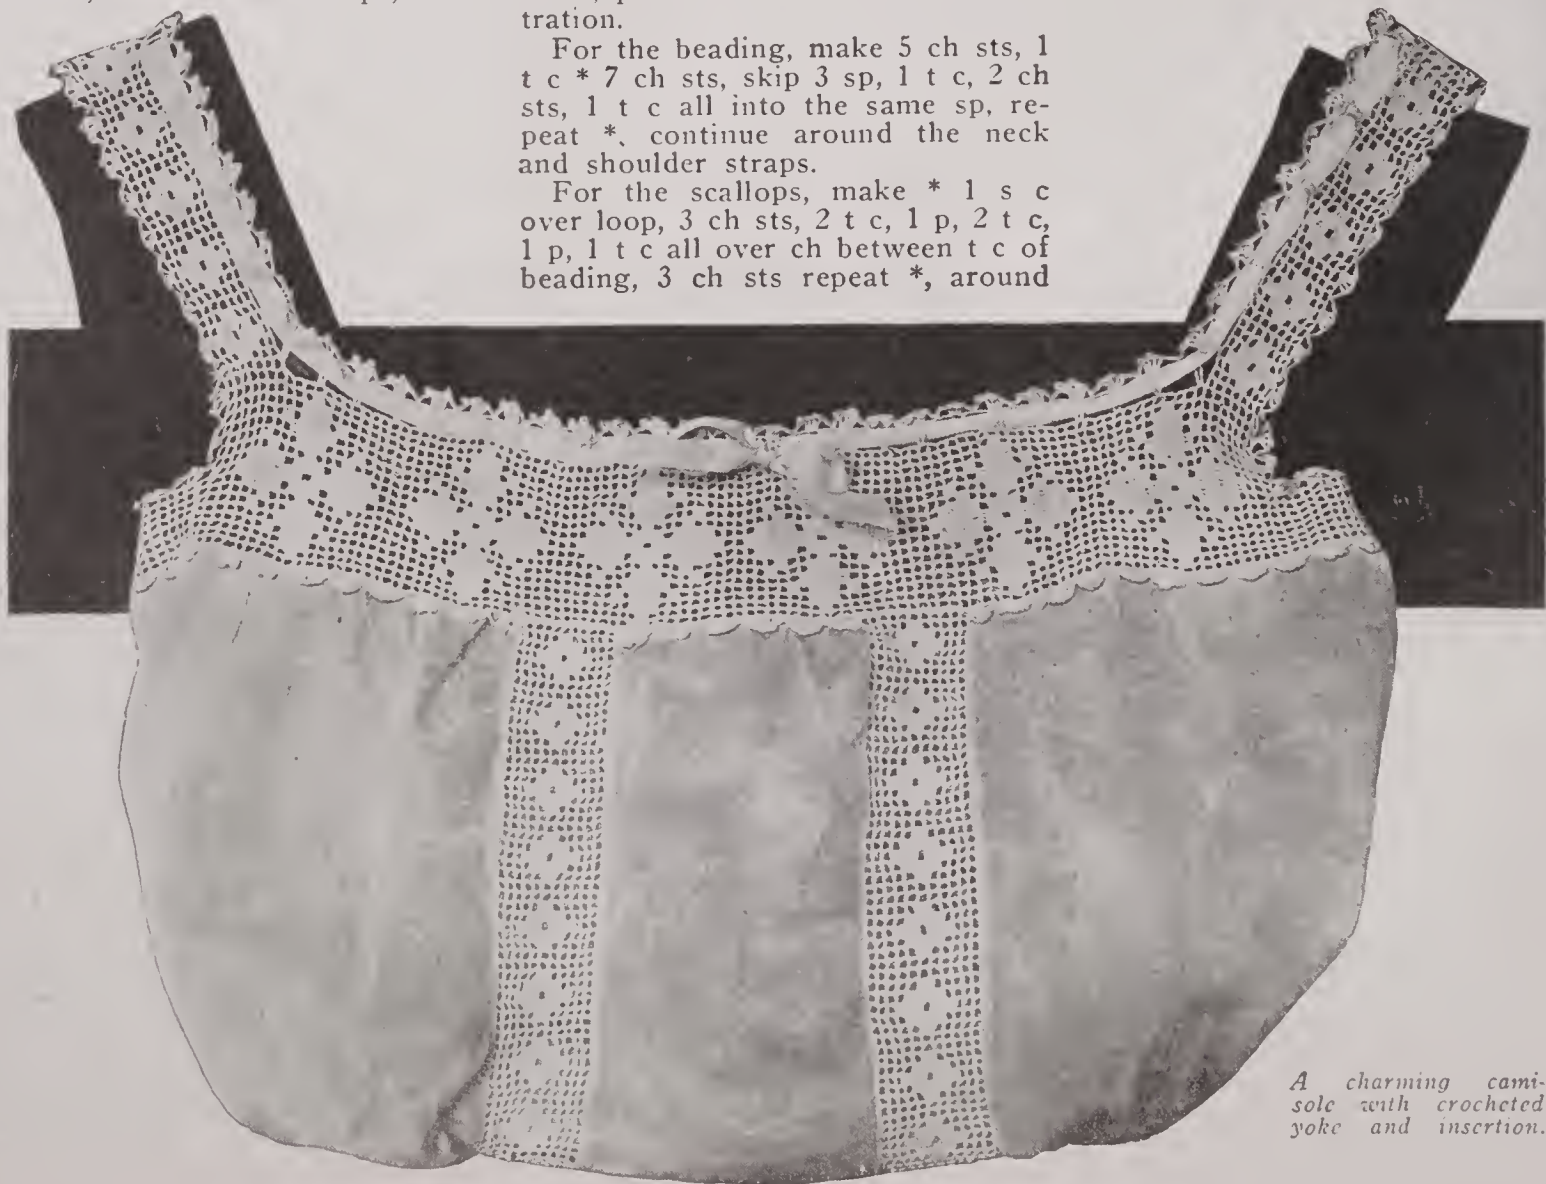 tration.
For the beading, make 5 ch sts, 1
t c * 7 ch sts, skip 3 sp, 1 t c, 2 ch
sts, 1 t c all into the same sp, re-
peat *, continue around the neck
and shoulder straps.
For the scallops, make * 1 s c
over loop, 3 ch sts, 2 t c, 1 p, 2 t c,
1 p, 1 t c all over ch between t c of
beading, 3 ch sts repeat *, around
A charming cami-
sole with crocheted
yoke and insertion.